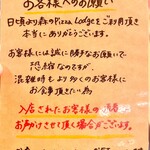 お客様へのお願い
日頃より森のPizza Lodgeをご利用頂き
本当にありがとうございます。
お客様には誠に勝手なお願いで
恐縮なのですが、
混雑時もより多くのお客様に
お食事頂きたい為
入店されたお客様の
お声がけさせて頂く場合がございます。